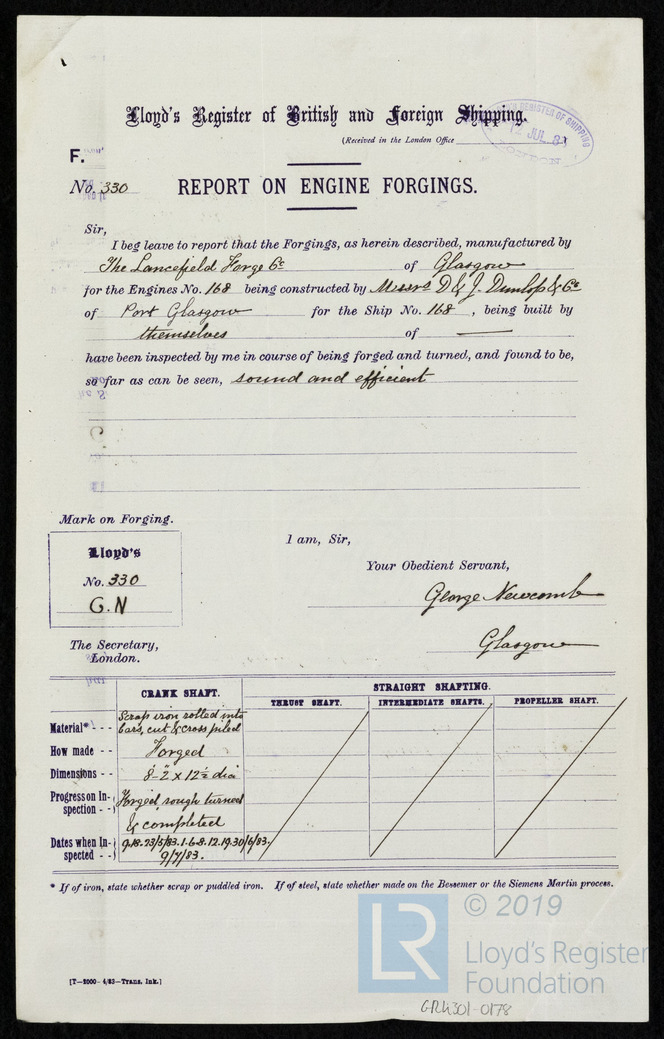 Lloyd's Register of British and Foreign Shipping.
(Received in the London Office
REGISTER OF SHIPPING
12 JUL. 83
LONDON
F.
No. 330
REPORT ON ENGINE FORGINGS.
Sir,
I beg leave to report that the Forgings, as herein described, manufactured by
The Lancefield Forge Co of Glasgow
for the Engines No. 168 being constructed by Messrs D & J. Dunlop & Co
of Port Glasgow for the Ship No. 168, being built by
themselves of —
have been inspected by me in course of being forged and turned, and found to be,
so far as can be seen, sound and efficient
Mark on Forging.
I am, Sir,
Lloyd's
Your Obedient Servant,
No. 330
George Newcomb
G.N
Glasgow
The Secretary,
London.
CRANK SHAFT.
STRAIGHT SHAFTING.
THRUST SHAFT.
INTERMEDIATE SHAFTS.
PROPELLER SHAFT.
Material* - - - Scrap iron rolled into
bars, cut & cross piled
How made - - Forged
Dimensions - - 8'-2" x 12½ dia
Progress on Inspection - - Forged, rough turned
& completed
Dates when Inspected - - 9.18.23/5/83.1.6.8.12.19.30/6/83.
9/7/83.
* If of iron, state whether scrap or puddled iron. If of steel, state whether made on the Bessemer or the Siemens Martin process.
© 2019
LR
Lloyd's Register
Foundation
[T—2000—4/83—Trans. Ink.]
GRK301-0178